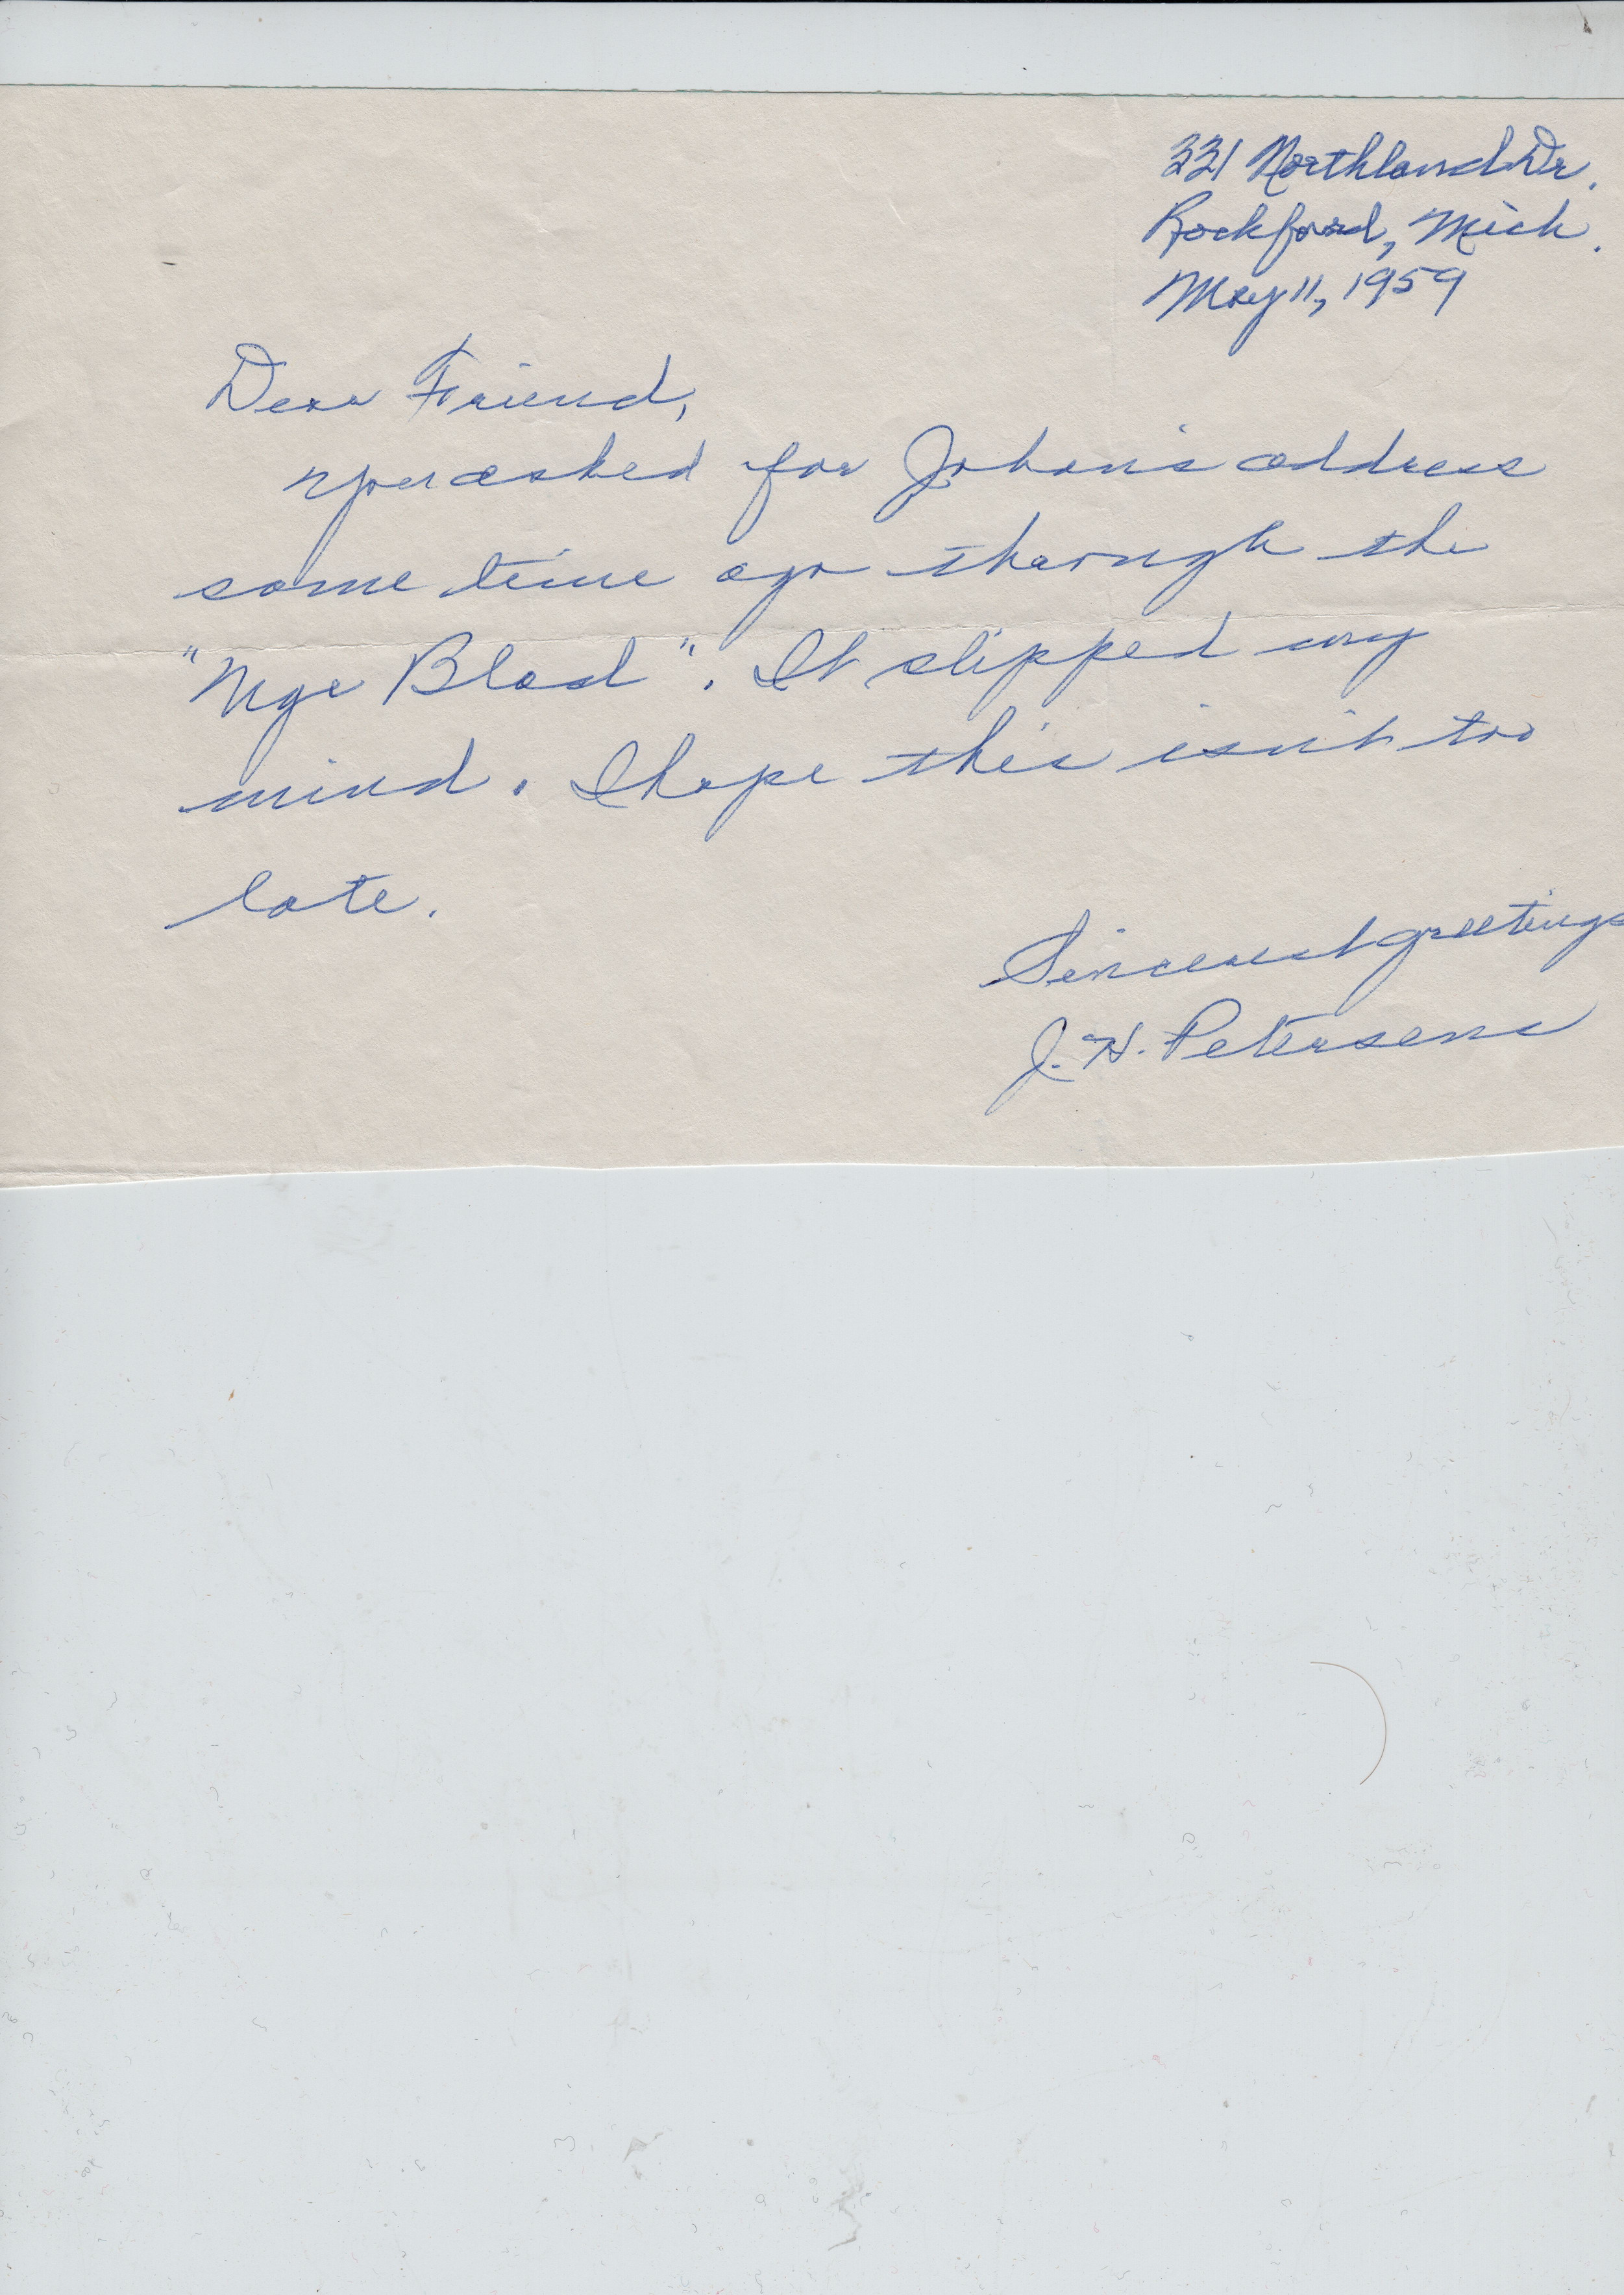 331 Northland Dr.
Rockford, Mich.
May 11, 1959
Dear Friend,
You asked for Johan's address
some time ago through the
"Nye Blad". It slipped my
mind. I hope this isn't too
late.
Sincerest greetings
J. H. Petersens